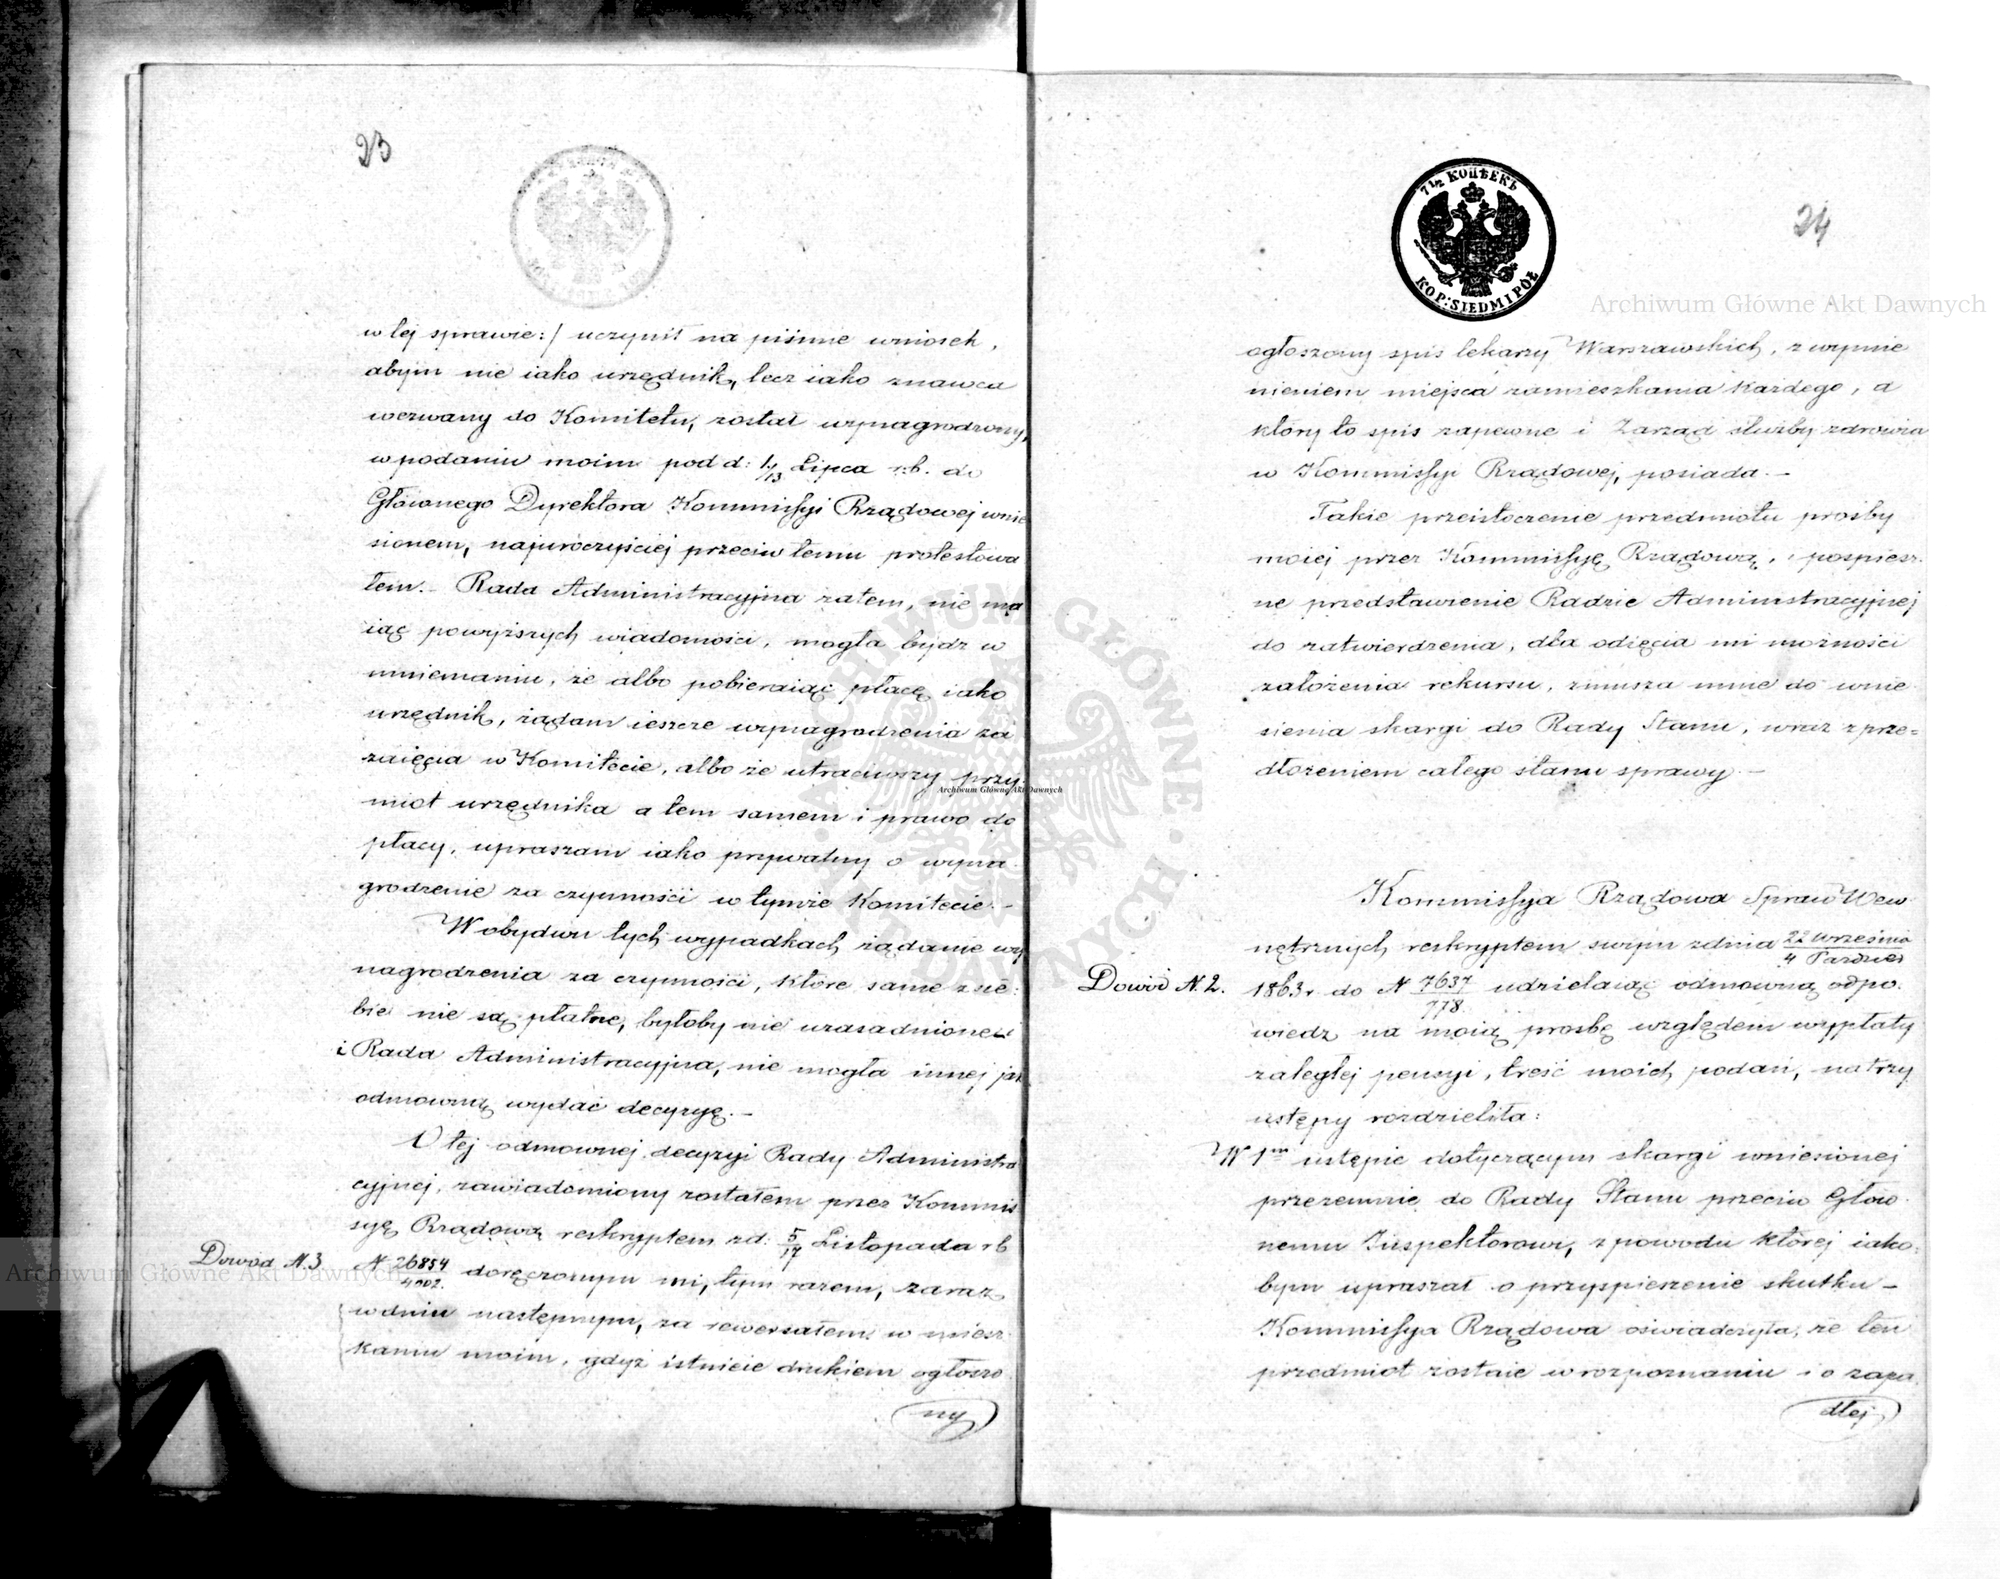 23
w tej sprawie:/ uczynił na piśmie wniosek,
abym nie iako urzędnik, lecz iako znawca
wezwany do Komitetu, został wynagrodzony,
w podaniu moim pod d: 1/13 Lipca r.b. do
Głównego Dyrektora Kommissyi Rządowej wnie
sionem, najuroczyściej przeciw temu protestowa
łem. – Rada Administracyjna zatem, nie ma
iąc powyższych wiadomości, mogła bydź w
mniemaniu, że albo pobieraiąc płacę iako
urzędnik, żądam ieszcze wynagrodzenia za
zaięcia w Komitecie, albo że utraciwszy przy
miot urzędnika a tem samem i prawo do
płacy, upraszam iako prywatny o wyna
grodzenie za czynności w tymże Komitecie. –
W obydwu tych wypadkach, żądanie wy
nagrodzenia za czynności, które same z sie
bie nie są płatne, byłoby nie uzasadnione
i Rada Administracyjna, nie mogła innej jak
odmowną wydać decyzyę. –
O tej odmownej decyzyi Rady Administra
cyjnej, zawiadomiony zostałem przez Kommis
syę Rządową reskryptem z d: 5/17 Listopada r b
Dowód N. 3 N 26854/4002. doręczonym mi, tym razem, zaraz
w dniu następnym, za rewersałem w miesz
kaniu moim, gdyż istnieie drukiem ogłoszo
ny
7 1/2 КОПѢЕКЪ
KOP: SIEDM I PÓŁ
24
ogłoszony spis lekarzy Warszawskich, z wymie
nieniem miejsca zamieszkania każdego, a
który to spis zapewne i Zarząd służby zdrowia
w Kommissyi Rządowej, posiada. –
Takie przeistoczenie przedmiotu prośby
moiej przez Kommissyę Rządową, i pospiesz
ne przedstawienie Radzie Administracyjnej
do zatwierdzenia, dla odięcia mi możności
założenia rekursu, zmusza mnie do wnie
sienia skargi do Rady Stanu, wraz z prze=
dłożeniem całego stanu sprawy. –
Kommissya Rządowa Spraw Wew
nętrznych reskryptem swym z dnia 22 Września/4 Paździer
Dowód N. 2. 1863 r do N 7637/778 udzielaiąc odmowną odpo
wiedz na moią prośbę względem wypłaty
zaległej pensyi, treść moich podań, na trzy
ustępy rozdzieliła:
W 1m ustępie dotyczącym skargi wniesionej
przezemnie do Rady Stanu przeciw Głów
nemu Inspektorowi, z powodu której iako=
bym upraszał o przyspieszenie skutku –
Kommissya Rządowa oświadczyła, że ten
przedmiot zostaie w rozpoznaniu i o zapa
dłej
Archiwum Główne Akt Dawnych
Archiwum Główne Akt Dawnych
Archiwum Główne Akt Dawnych
ARCHIWUM GŁÓWNE AKT DAWNYCH